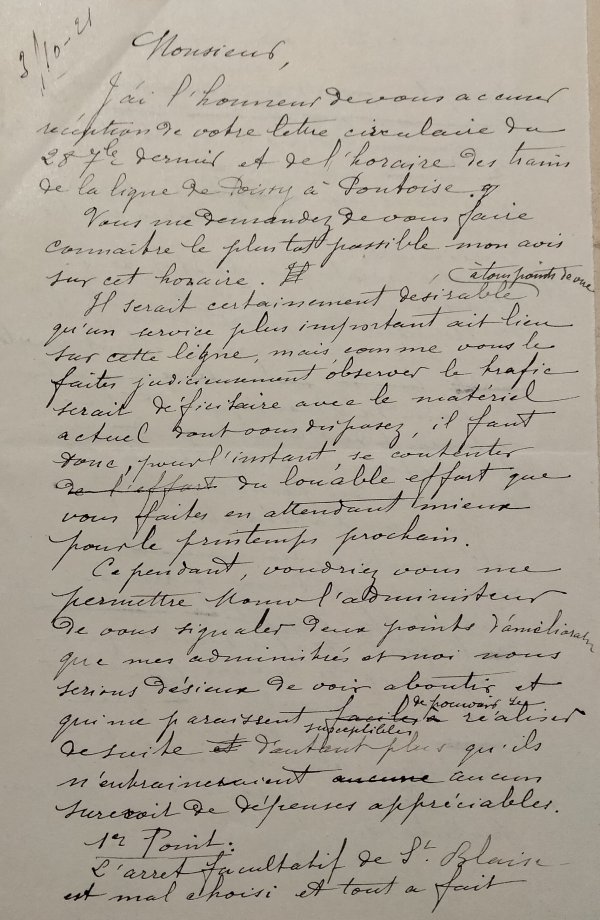 3/10-21
Monsieur,
J'ai l'honneur de vous accuser
réception de votre lettre circulaire du
28 7bre dernier et de l'horaire des trains
de la ligne de Poissy à Pontoise.
Vous me demandez de vous faire
connaître le plus tot possible mon avis
sur cet horaire.
à tous points de vue
Il serait certainement désirable
qu'un service plus important ait lieu
sur cette ligne, mais, comme vous le
faites judicieusement observer le trafic
serait déficitaire avec le matériel
actuel dont vous disposez, il faut
donc, pour l'instant, se contenter
de l'effort du louable effort que
vous faites en attendant mieux
pour le printemps prochain.
Cependant, voudriez vous me
permettre Monsr l'administeur
de vous signaler deux points d'amélioration
que mes administrés et moi nous
serions désieux de voir aboutir et
qui me paraissent faciles à susceptibles de pouvoir se réaliser
de suite et d'autant plus qu'ils
n'entraineraient aucune aucun
surcroit de dépenses appréciables.
1er Point.
L'arret facultatif de St Blaise
est mal choisi et tout a fait